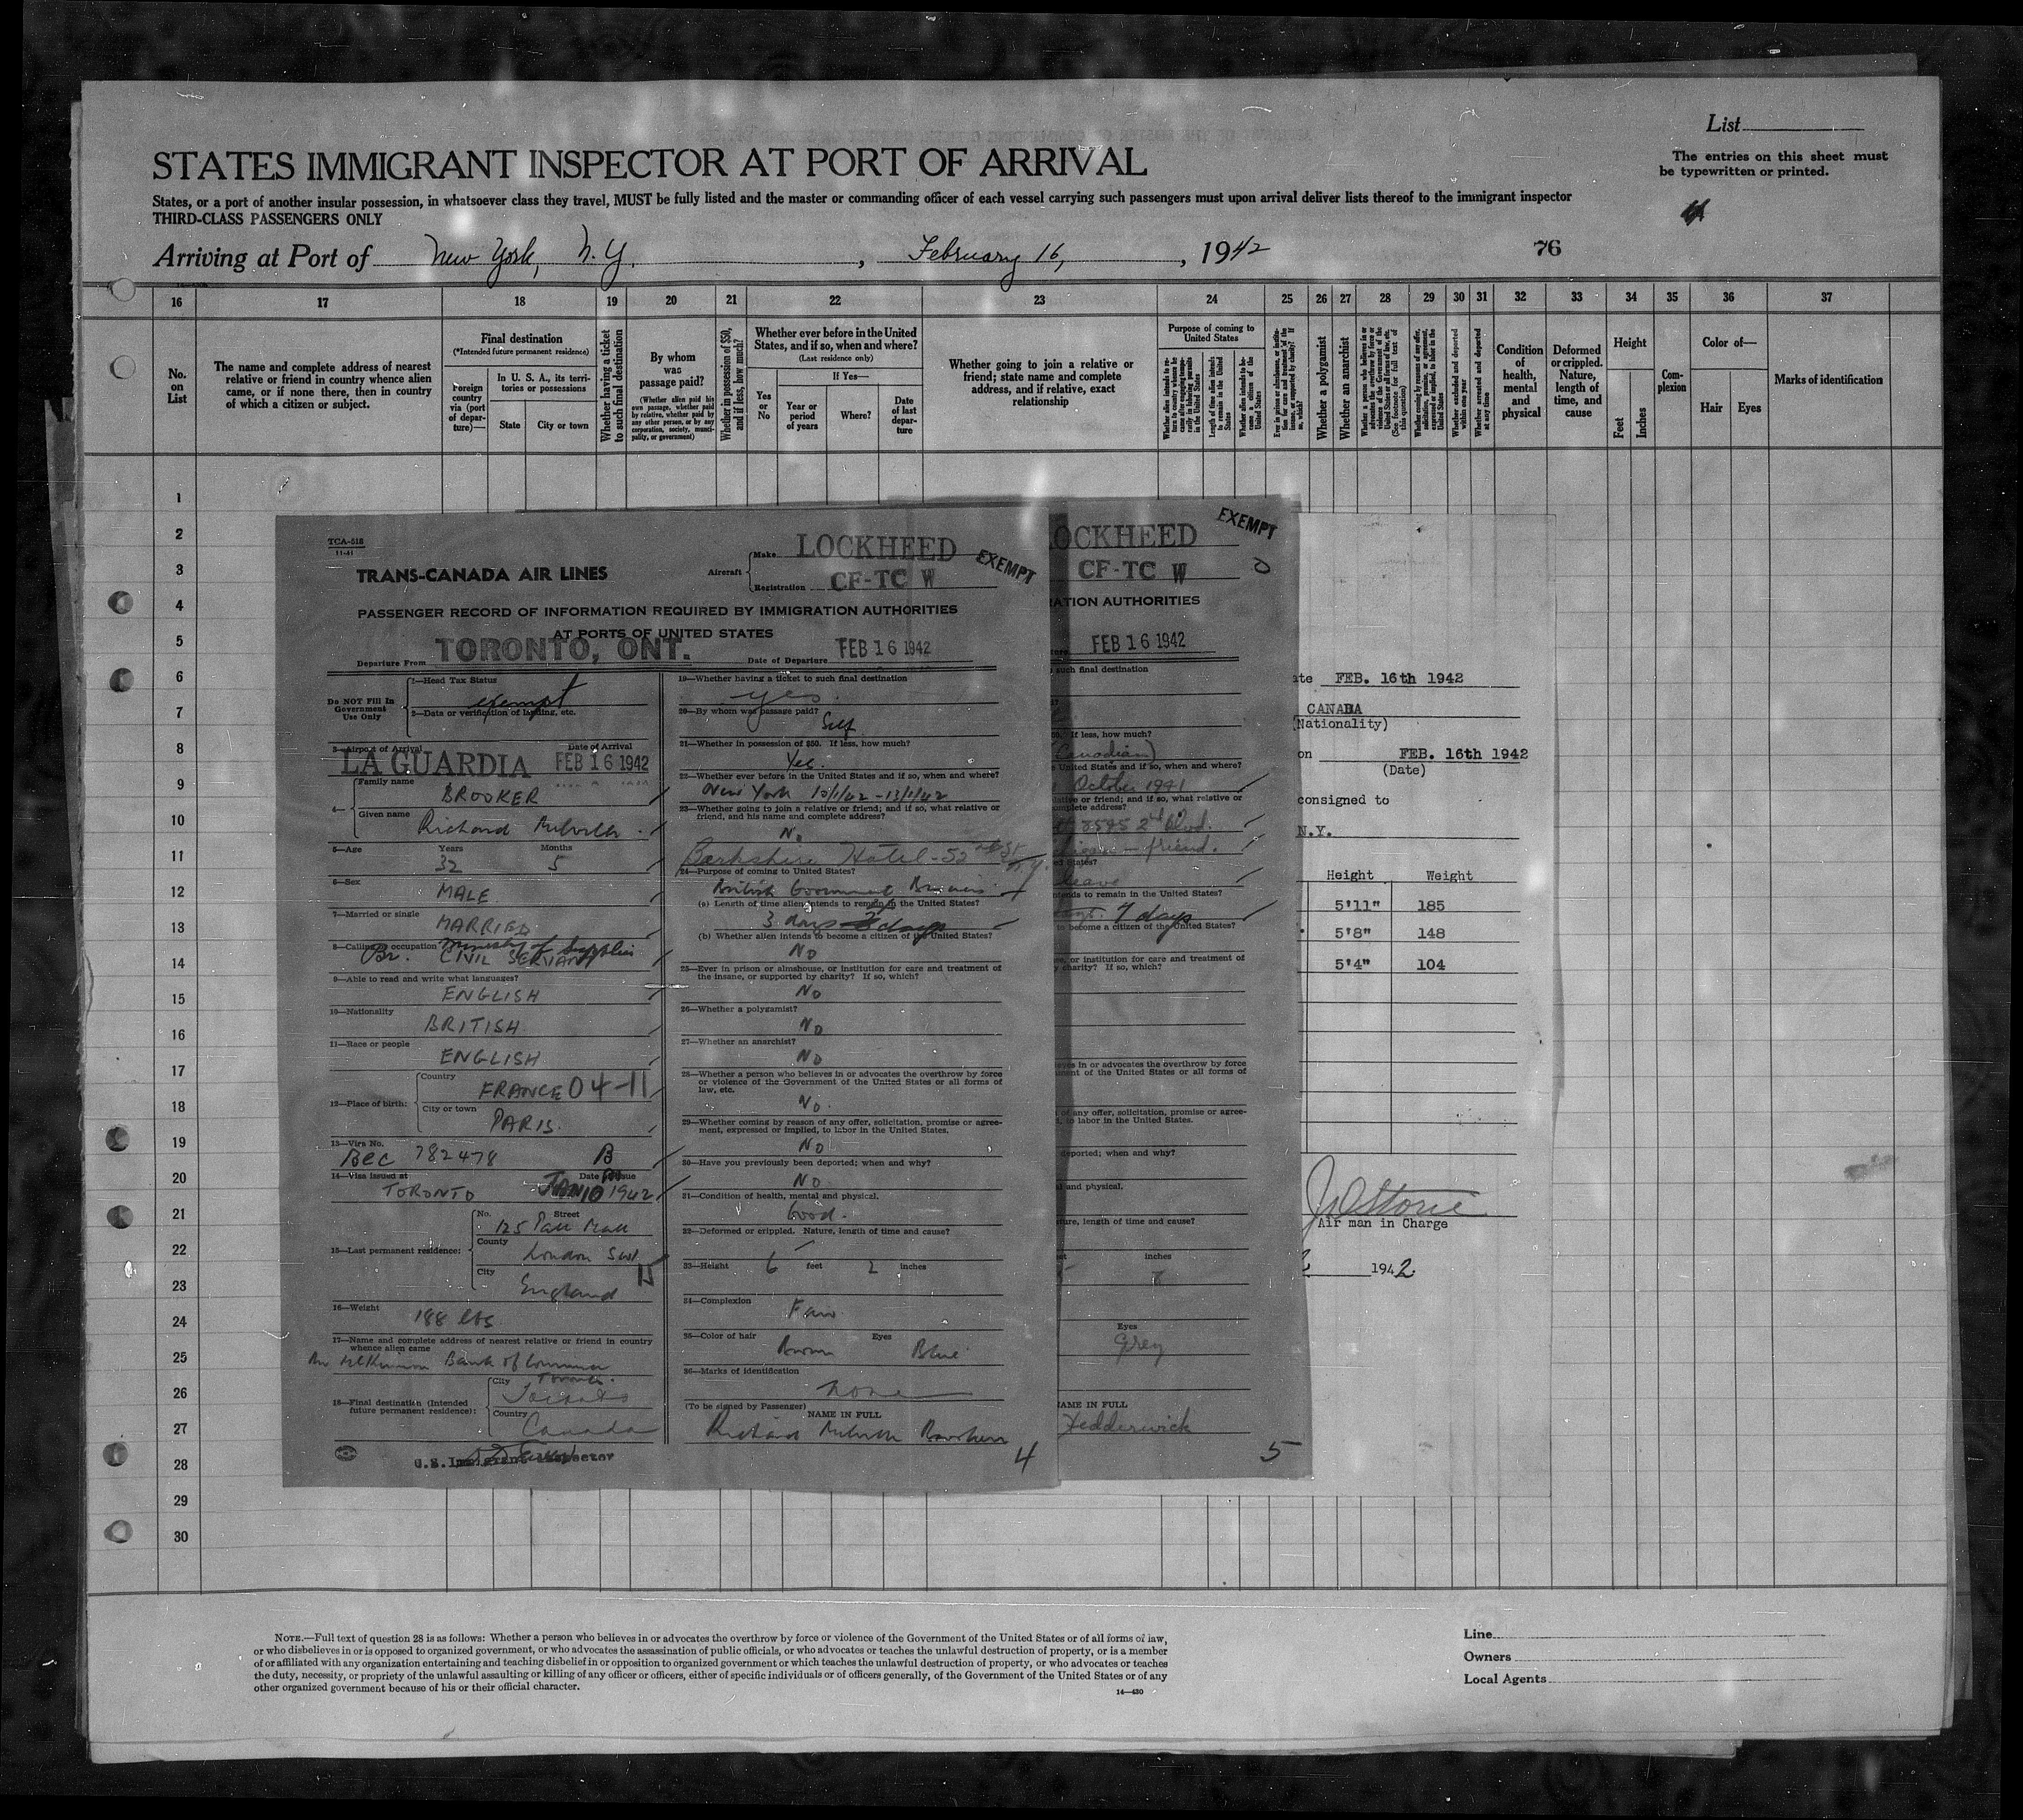 List
STATES IMMIGRANT INSPECTOR AT PORT OF ARRIVAL
The entries on this sheet must
be typewritten or printed.
States, or a port of another insular possession, in whatsoever class they travel, MUST be fully listed and the master or commanding officer of each vessel carrying such passengers must upon arrival deliver lists thereof to the immigrant inspector
THIRD-CLASS PASSENGERS ONLY
Arriving at Port of New York, N.Y., February 16, 1942
76
16 17 18 19 20 21 22 23 24 25 26 27 28 29 30 31 32 33 34 35 36 37
No. on List
The name and complete address of nearest
relative or friend in country whence alien
came, or if none there, then in country
of which a citizen or subject.
Final destination
(*Intended future permanent residence)
Foreign country via (port of departure)—
In U. S. A., its territories or possessions
State
City or town
Whether having a ticket to such final destination
By whom was passage paid?
(Whether alien paid his own passage, whether paid by relative, whether paid by any other person, or by any corporation, society, municipality, or government)
Whether in possession of $50, and if less, how much?
Whether ever before in the United
States, and if so, when and where?
(Last residence only)
Yes or No
If Yes—
Year or period of years
Where?
Date of last departure
Whether going to join a relative or
friend; state name and complete
address, and if relative, exact
relationship
Purpose of coming to
United States
Whether a polygamist
Whether an anarchist
Condition of health, mental and physical
Deformed or crippled. Nature, length of time, and cause
Height
Feet
Inches
Complexion
Color of—
Hair
Eyes
Marks of identification
1
2
3
4
5
6
7
8
9
10
11
12
13
14
15
16
17
18
19
20
21
22
23
24
25
26
27
28
29
30
TCA-518
11-41
TRANS-CANADA AIR LINES
Aircraft
Make LOCKHEED
Registration CF-TC W
EXEMPT
PASSENGER RECORD OF INFORMATION REQUIRED BY IMMIGRATION AUTHORITIES
AT PORTS OF UNITED STATES
Departure From TORONTO, ONT.
Date of Departure FEB 16 1942
Do NOT Fill In
Government
Use Only
1—Head Tax Status
exempt
2—Data or verification of landing, etc.
3—Airport of Arrival
LA GUARDIA
Date of Arrival
FEB 16 1942
4—
Family name
BROOKER
Given name
Richard Melville
5—Age
Years 32
Months 5
6—Sex
MALE
7—Married or single
MARRIED
8—Calling or occupation
Br. Ministry of Supplies
CIVIL SERVANT
9—Able to read and write what languages?
ENGLISH
10—Nationality
BRITISH
11—Race or people
ENGLISH
12—Place of birth:
Country
FRANCE 04-11
City or town
PARIS.
13—Visa No.
BCC 782478 B
14—Visa issued at
TORONTO
Date of Issue
JAN 10 1942
15—Last permanent residence:
No. Street
125 Pall Mall
County
London SW1
City
England
16—Weight
188 lbs
17—Name and complete address of nearest relative or friend in country
whence alien came
Bank of Commerce
Toronto.
18—Final destination (Intended
future permanent residence):
City
Toronto
Country
Canada
U.S. Immigrant Inspector
19—Whether having a ticket to such final destination
yes.
20—By whom was passage paid?
Self
21—Whether in possession of $50. If less, how much?
Yes.
22—Whether ever before in the United States and if so, when and where?
New York 10/1/42 - 13/1/42
23—Whether going to join a relative or friend; and if so, what relative or
friend, and his name and complete address?
No
Berkshire Hotel - 52nd St N.Y.
24—Purpose of coming to United States?
British Government Business
(a) Length of time alien intends to remain in the United States?
3 days
(b) Whether alien intends to become a citizen of the United States?
No
25—Ever in prison or almshouse, or institution for care and treatment of
the insane, or supported by charity? If so, which?
No
26—Whether a polygamist?
No
27—Whether an anarchist?
No
28—Whether a person who believes in or advocates the overthrow by force
or violence of the Government of the United States or all forms of
law, etc.
No.
29—Whether coming by reason of any offer, solicitation, promise or agree-
ment, expressed or implied, to labor in the United States.
No
30—Have you previously been deported; when and why?
No.
31—Condition of health, mental and physical.
Good.
32—Deformed or crippled. Nature, length of time and cause?
33—Height 6 feet 2 inches
34—Complexion
Fair
35—Color of hair
Brown
Eyes
Blue
36—Marks of identification
none
(To be signed by Passenger)
NAME IN FULL
Richard Melville Brooker
4
OCKHEED
CF-TC W
EXEMPT
ATION AUTHORITIES
FEB 16 1942
such final destination
If less, how much?
Canadian)
United States and if so, when and where?
October 1941
ative or friend; and if so, what relative or
mplete address?
8545 2nd Blvd.
friend.
ed States?
leave
ntends to remain in the United States?
7 days
to become a citizen of the United States?
se, or institution for care and treatment of
y charity? If so, which?
eves in or advocates the overthrow by force
ment of the United States or all forms of
of any offer, solicitation, promise or agree-
, to labor in the United States.
deported; when and why?
l and physical.
ture, length of time and cause?
inches
7
Eyes
Grey
NAME IN FULL
Fedderwick
5
te FEB. 16th 1942
CANADA
(Nationality)
on FEB. 16th 1942
(Date)
consigned to
N.Y.
Height Weight
5'11" 185
5'8" 148
5'4" 104
Air man in Charge
1942
NOTE.—Full text of question 28 is as follows: Whether a person who believes in or advocates the overthrow by force or violence of the Government of the United States or of all forms of law,
or who disbelieves in or is opposed to organized government, or who advocates the assassination of public officials, or who advocates or teaches the unlawful destruction of property, or is a member
of or affiliated with any organization entertaining and teaching disbelief in or opposition to organized government or which teaches the unlawful destruction of property, or who advocates or teaches
the duty, necessity, or propriety of the unlawful assaulting or killing of any officer or officers, either of specific individuals or of officers generally, of the Government of the United States or of any
other organized government because of his or their official character.
14—430
Line
Owners
Local Agents